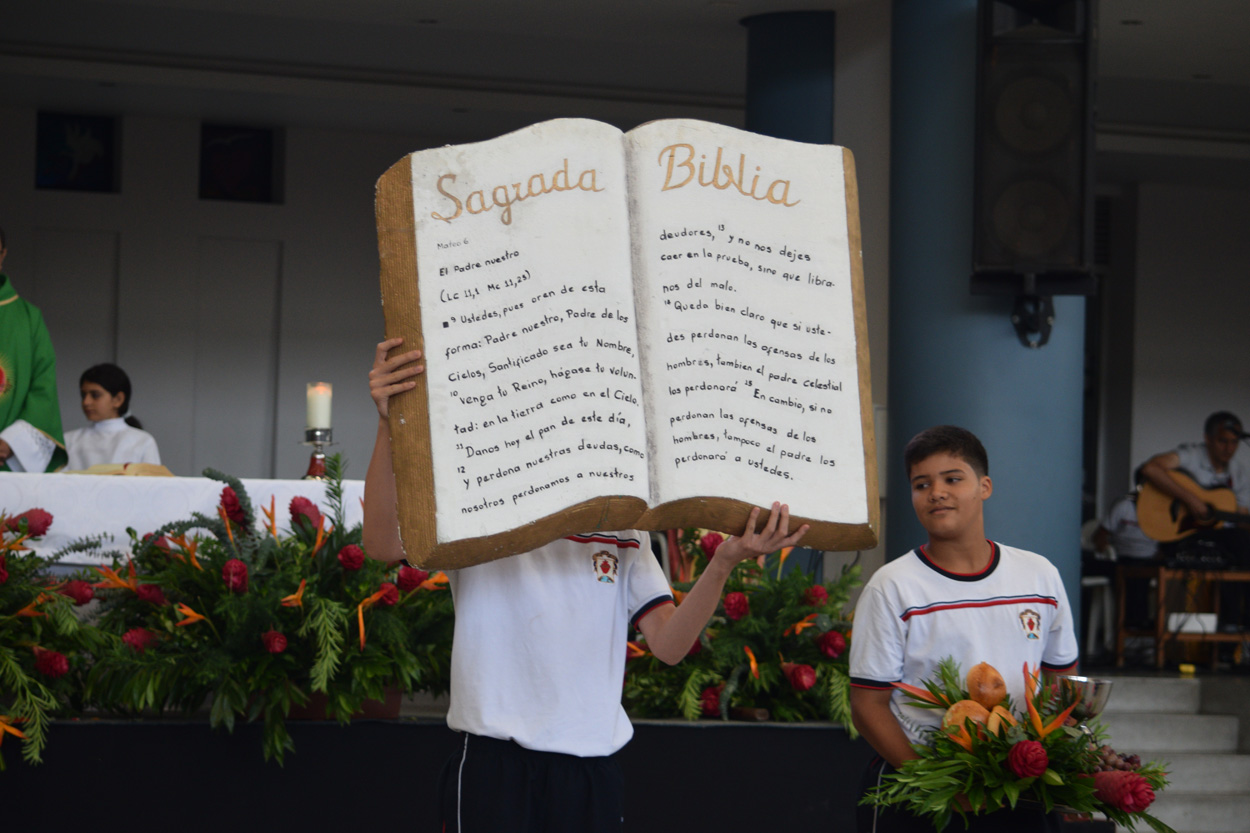 Sagrada
Mateo 6
El Padre nuestro
(Lc 11,1 Mc 11,25)
■ 9 Ustedes, pues oren de esta
forma: Padre nuestro, Padre de los
Cielos, Santificado sea tu Nombre,
10 venga tu Reino, hágase tu volun-
tad: en la tierra como en el Cielo.
11 Danos hoy el pan de este día,
12 y perdona nuestras deudas, como
nosotros perdonamos a nuestros
Biblia
deudores, 13 y no nos dejes
caer en la prueba, sino que libra-
nos del malo.
14 Queda bien claro que si uste-
des perdonan las ofensas de los
hombres, tambien el padre celestial
los perdonará 15 En cambio, si no
perdonan las ofensas de los
hombres, tampoco el padre los
perdonará a ustedes.